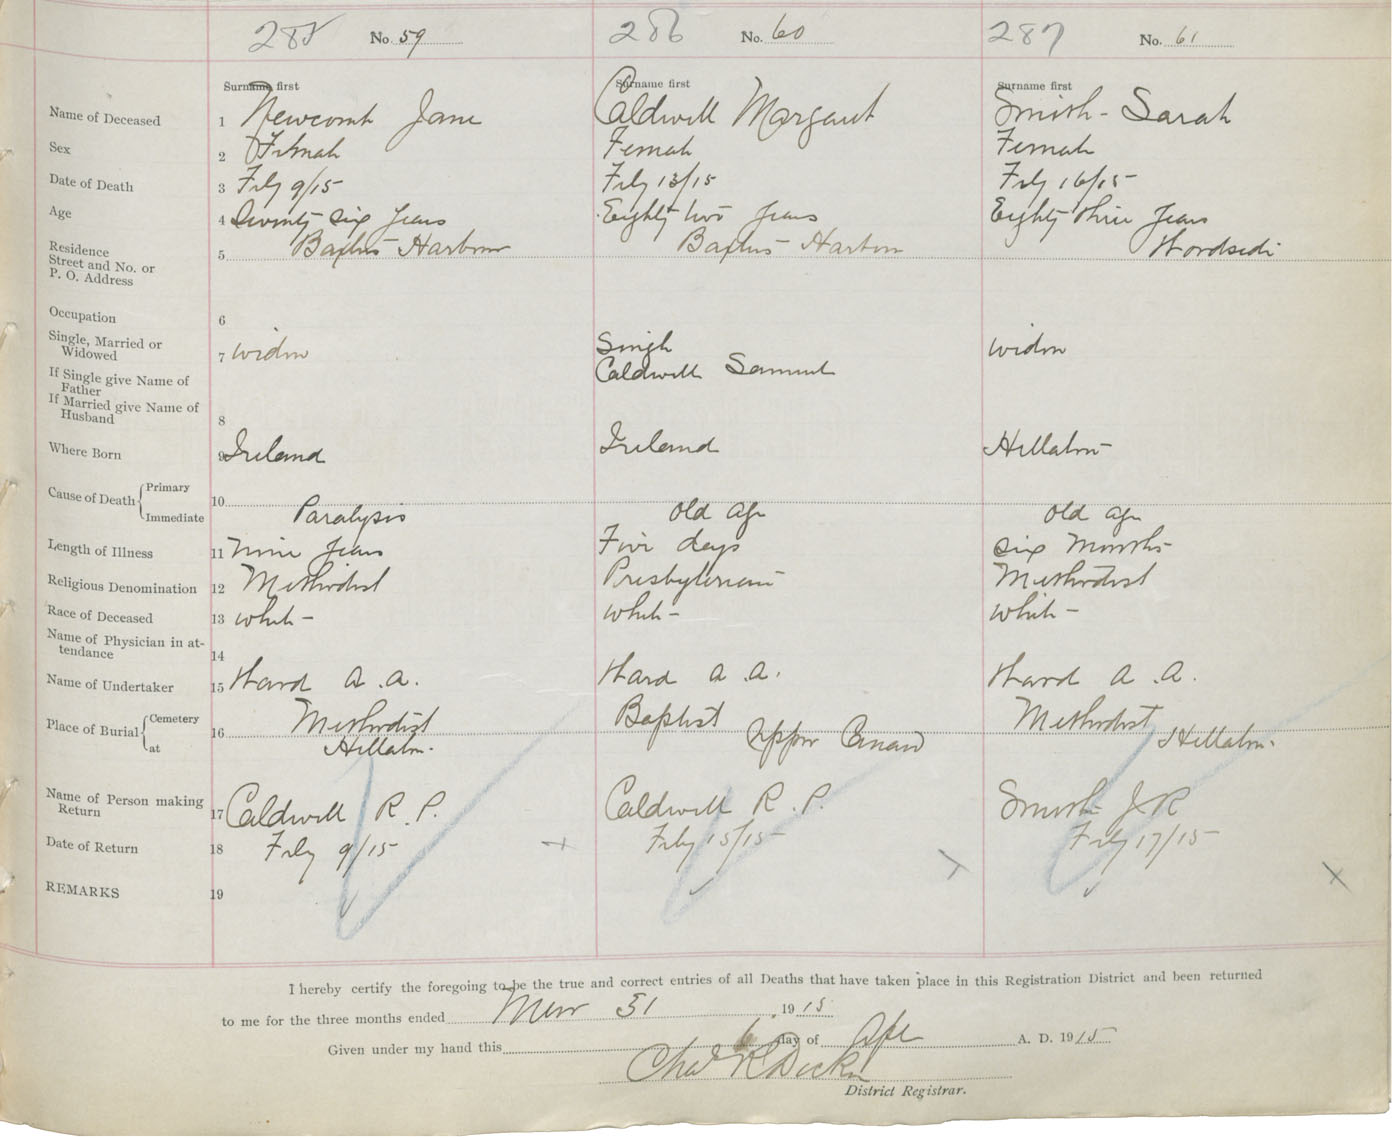 285 No. 59 286 No. 60 287 No. 61
Surname first Surname first Surname first
Name of Deceased 1 Newcomb Jane Caldwell Margaret Smith - Sarah
Sex 2 Female Female Female
Date of Death 3 Feby 9/15 Feby 13/15 Feby 16/15
Age 4 Seventy six years Eighty two years Eighty three years
Residence
Street and No. or
P. O. Address 5 Baxters Harbour Baxters Harbour Woodside
Occupation 6
Single, Married or
Widowed 7 widow Single widow
If Single give Name of
Father Caldwell Samuel
If Married give Name of
Husband 8
Where Born 9 Ireland Ireland Hillaton
Cause of Death { Primary 10
Immediate Paralysis old age old age
Length of Illness 11 Nine years Five days six Months
Religious Denomination 12 Methodist Presbyterian Methodist
Race of Deceased 13 white - white - white -
Name of Physician in at-
tendance 14
Name of Undertaker 15 Ward A. A. Ward A. A. Ward A. A.
Place of Burial { Cemetery Methodist Baptist Methodist
at 16 Hillaton. Upper Canard Hillaton.
Name of Person making
Return 17 Caldwell R. P. Caldwell R. P. Smith J R
Date of Return 18 Feby 9/15 Feby 15/15 Feby 17/15
REMARKS 19
I hereby certify the foregoing to be the true and correct entries of all Deaths that have taken place in this Registration District and been returned
to me for the three months ended Mar 31 1915
Given under my hand this 6 day of Apr A. D. 1915
Chas R
District Registrar.